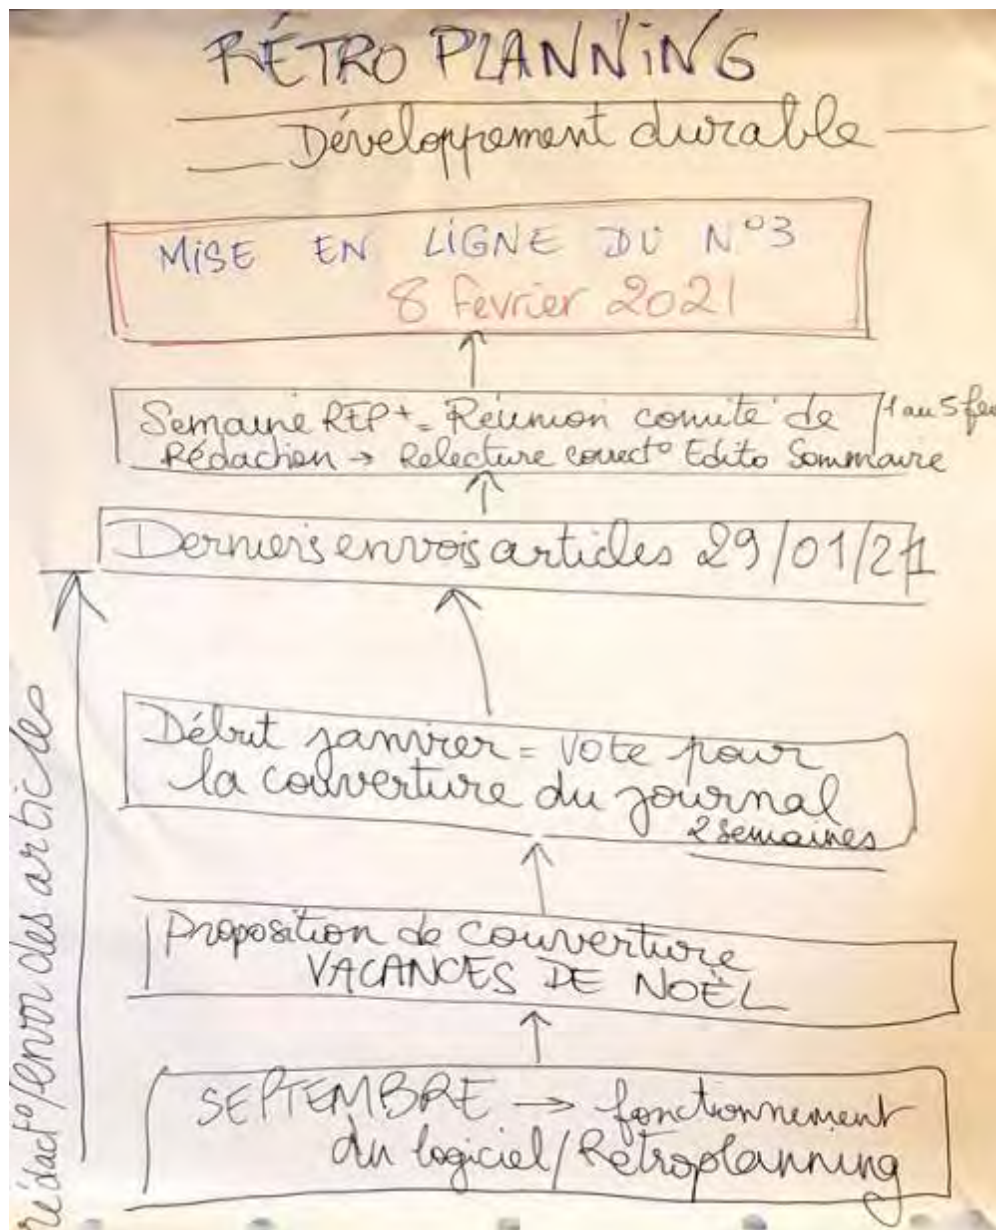 RÉTRO PLANNING
Développement durable
MISE EN LIGNE DU N°3
8 fevrier 2021
Semaine REP+ = Réunion comité de
1 au 5 fev
Rédaction → Relecture correct° Edito Sommaire
Derniers envois articles 29/01/21
Début janvier = Vote pour
la couverture du journal
2 semaines
Proposition de couverture
VACANCES DE NOËL
SEPTEMBRE → fonctionnement
du logiciel/Rétroplanning
rédact°/envoi des articles